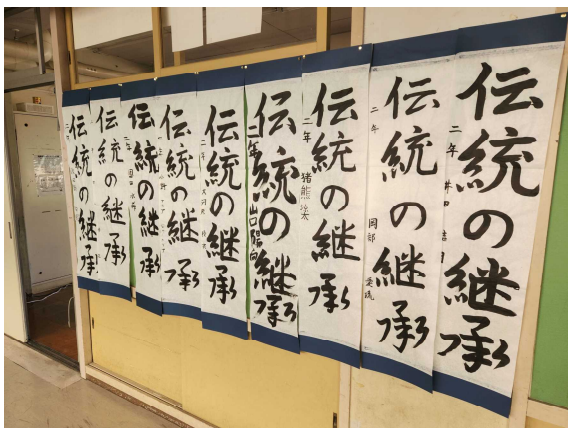 伝統の継承
二年
伝統の継承
二年 岡部
伝統の継承
二年 猪熊
伝統の継承
二年 山口陽向
伝統の継承
二年
伝統の継承
伝統の継承
二年
伝統の継承
伝統の継承